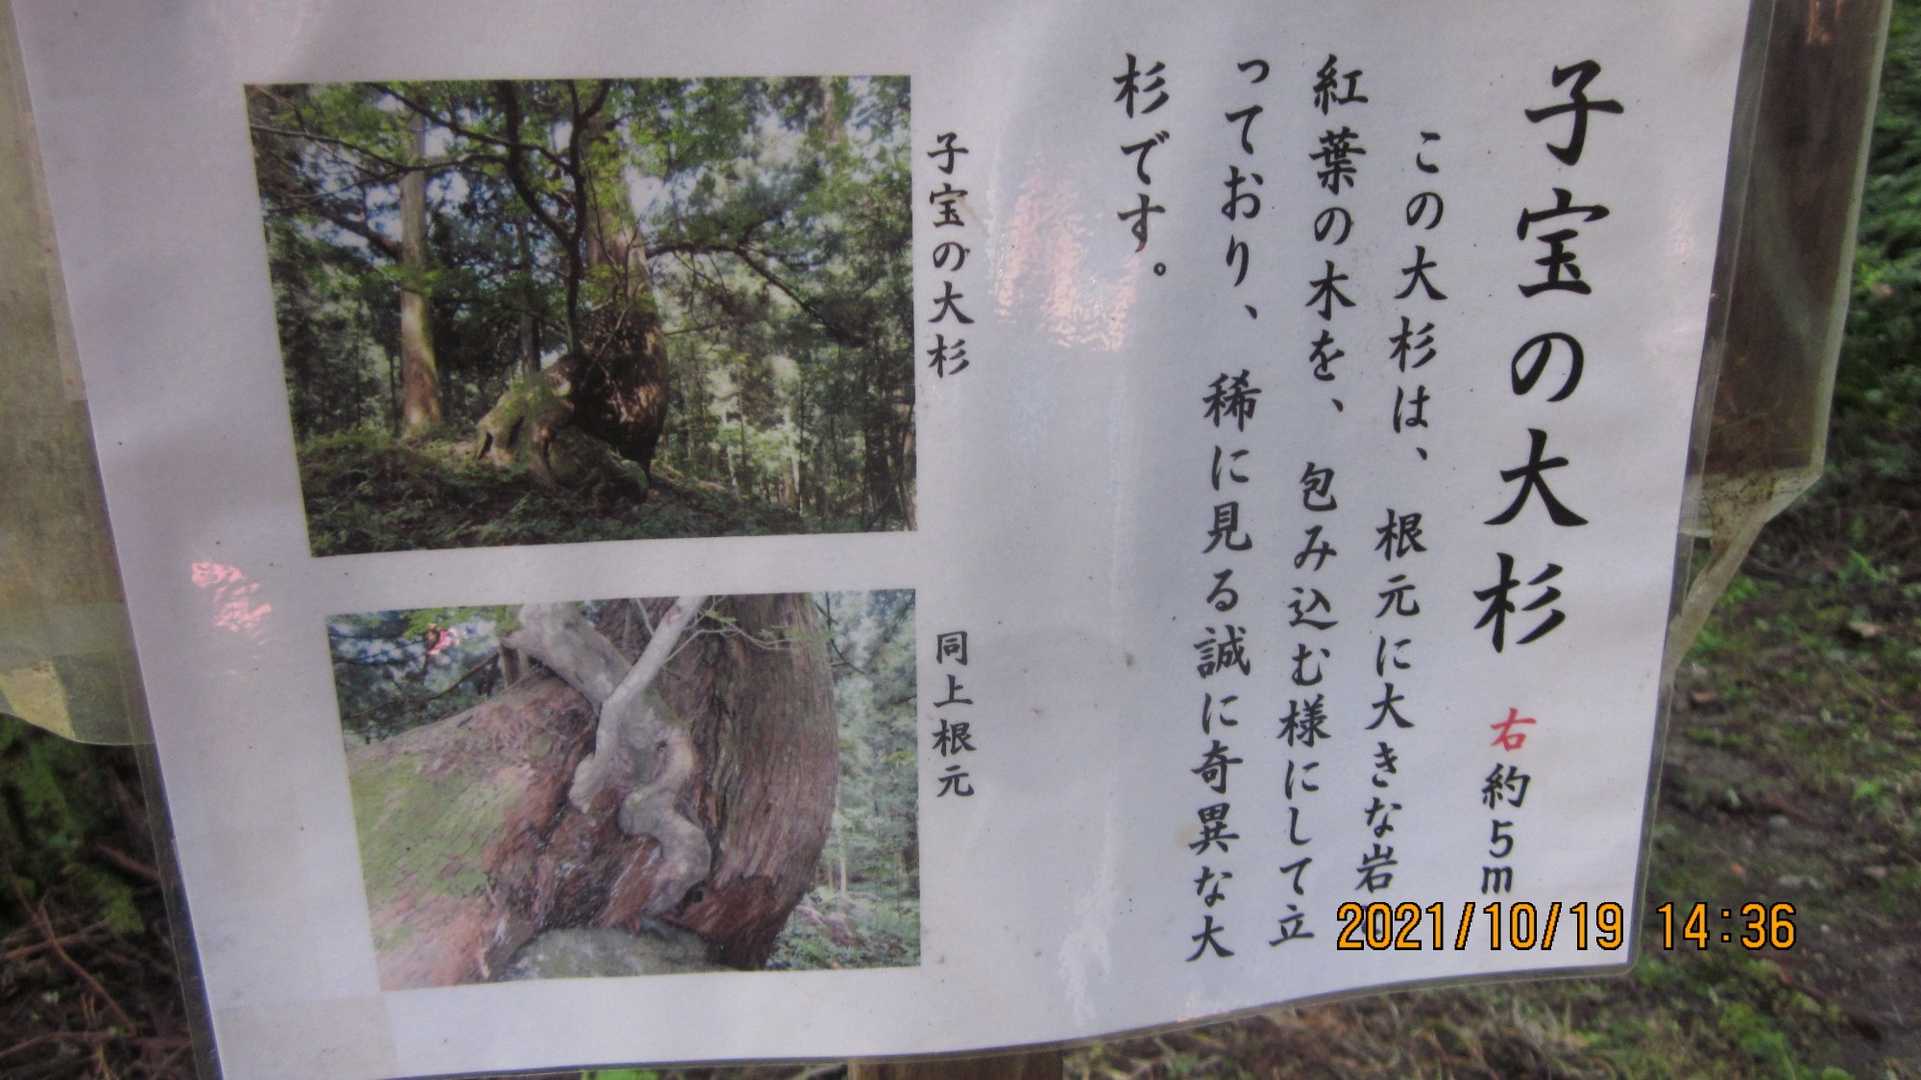 子宝の大杉 右約5m
この大杉は、根元に大きな岩
紅葉の木を、包み込む様にして立
っており、稀に見る誠に奇異な大
杉です。
子宝の大杉
同上根元
2021/10/19 14:36